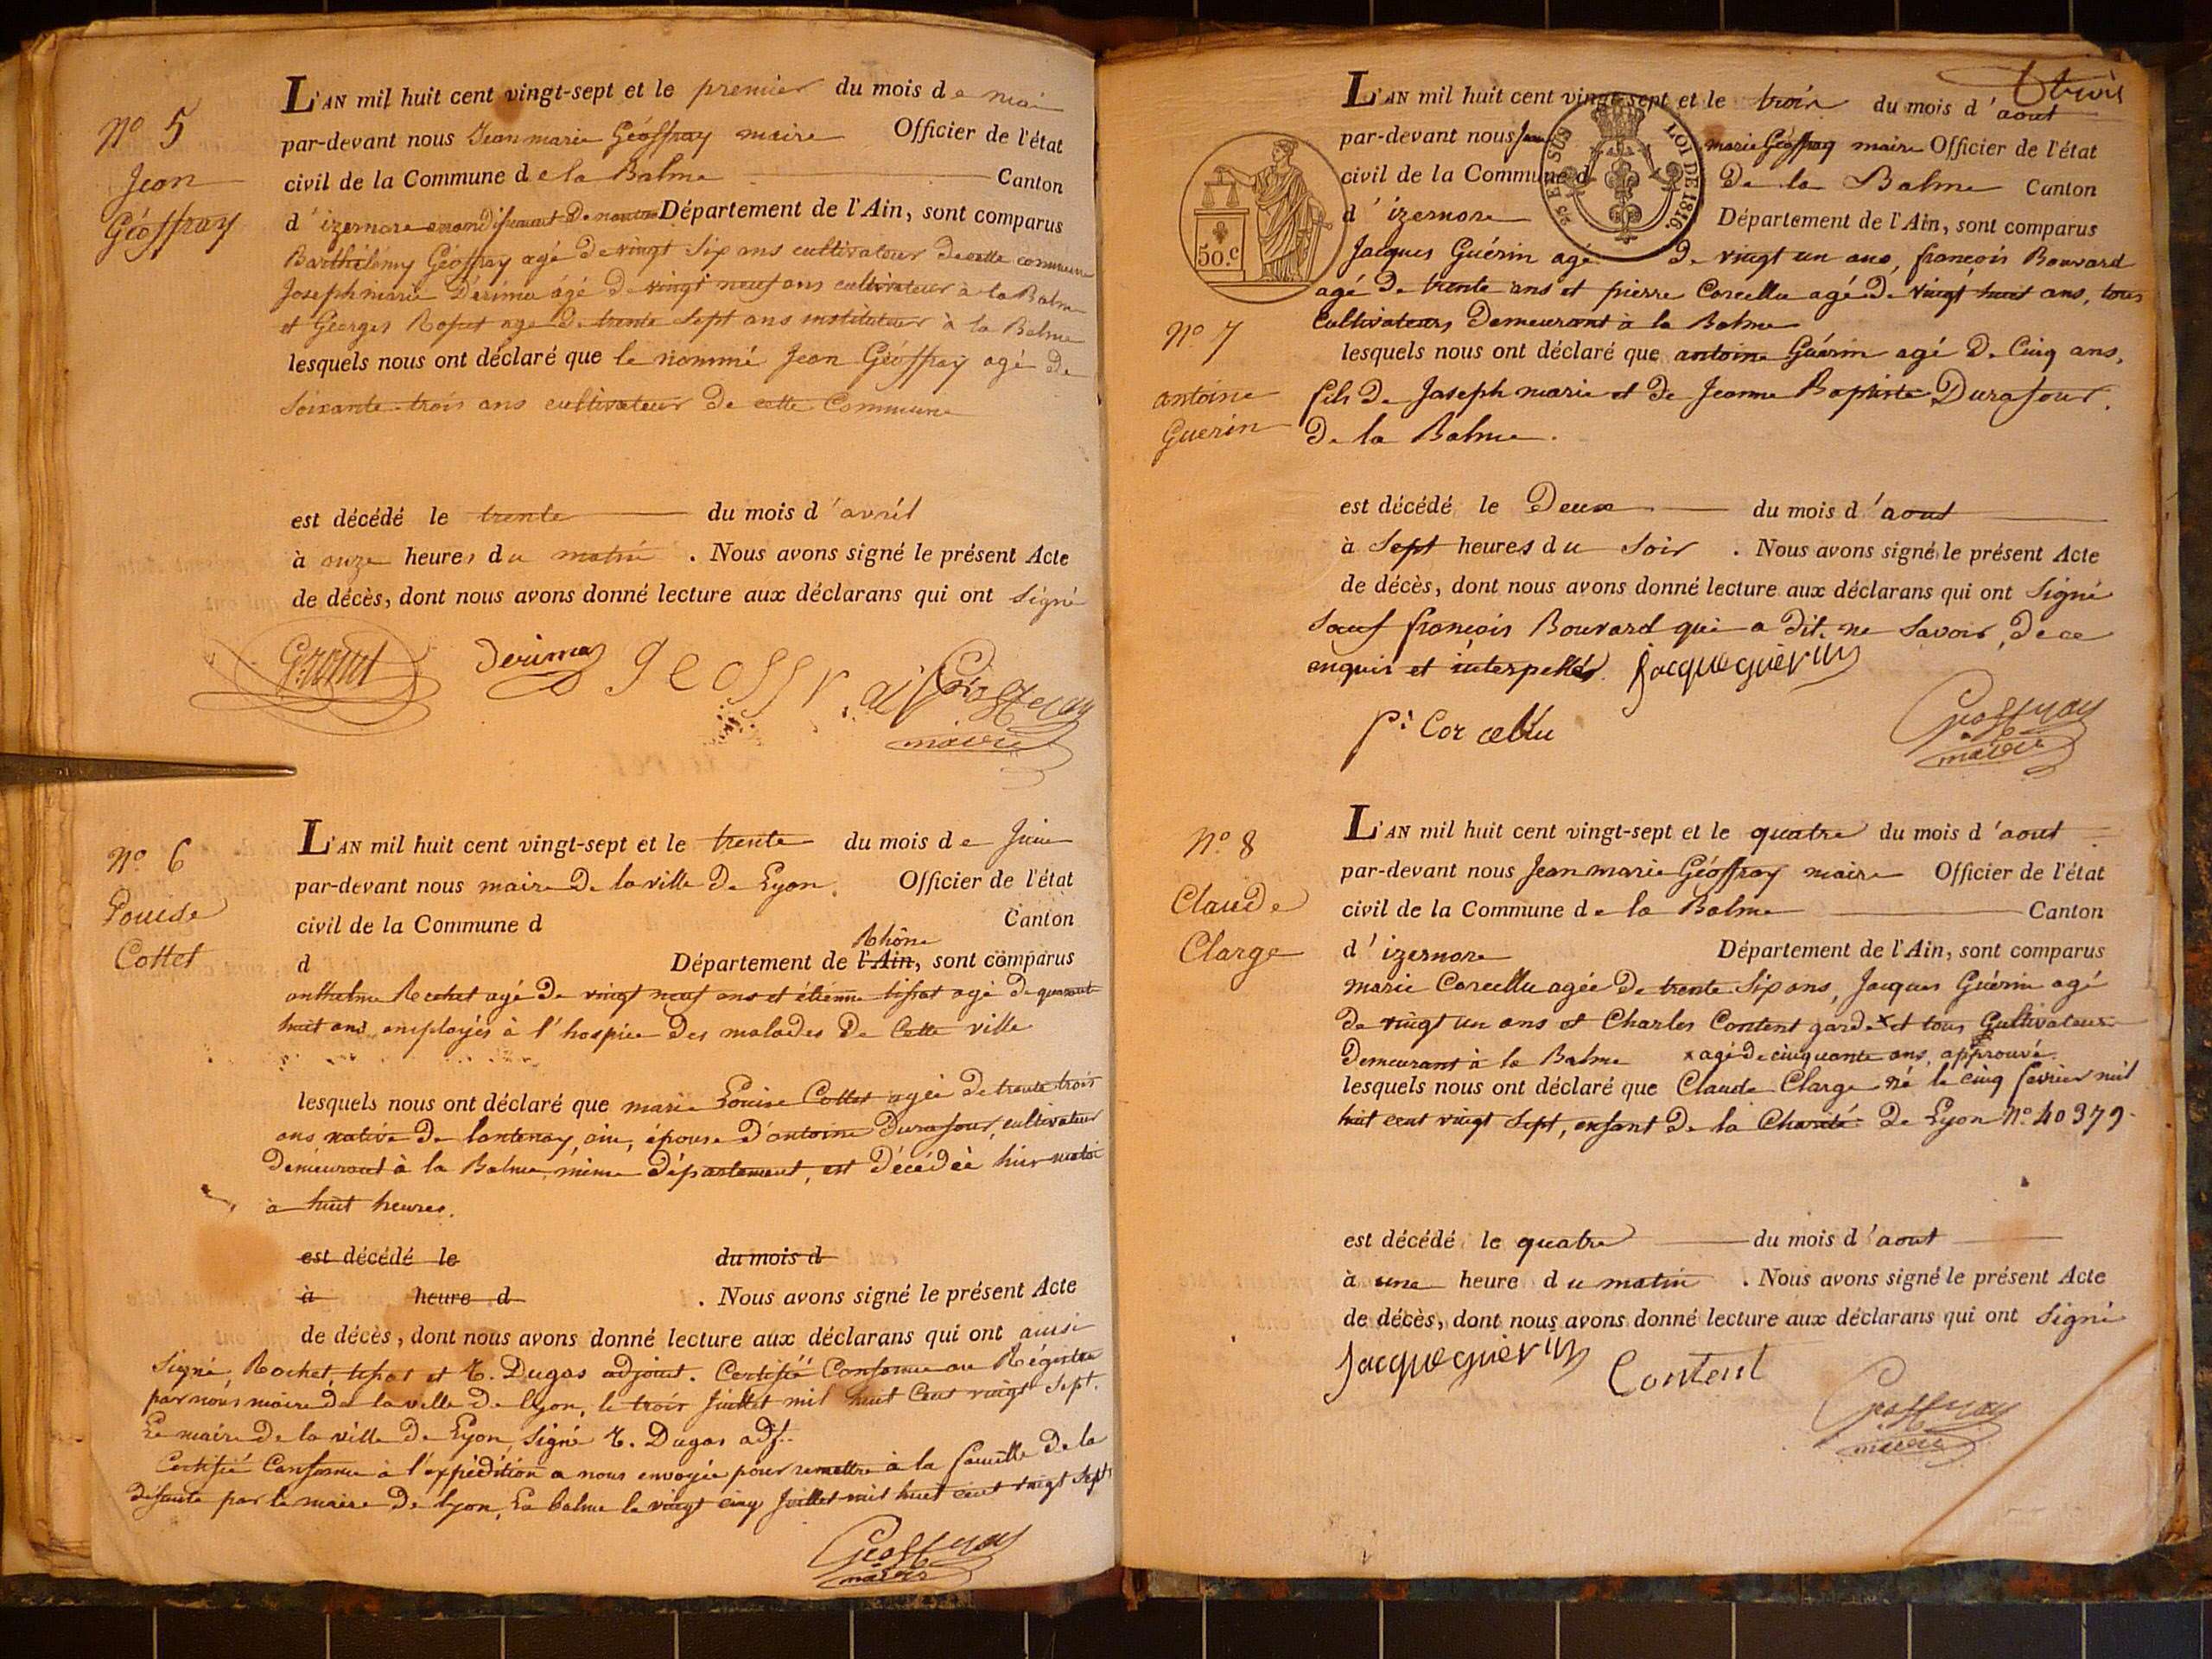 N.º 5
Jean
Géoffray
L'AN mil huit cent vingt-sept et le premier du mois de mai
par-devant nous Jean marie Géoffray maire Officier de l'état
civil de la Commune de la Balme Canton
d'izernore Département de l'Ain, sont comparus
Barthélémy Géoffray agé de vingt six ans cultivateur de cette commune
Joseph marie Dérimay agé de vingt neuf ans cultivateur à la Balme
et Georges agé de trente sept ans instituteur à la Balme
lesquels nous ont déclaré que le nommé Jean Géoffray agé de
soixante trois ans cultivateur de cette Commune
est décédé le trente du mois d'avril
à onze heures du matin . Nous avons signé le présent Acte
de décès, dont nous avons donné lecture aux déclarans qui ont signé
maire
N.º 6
Louise
Cottet
L'AN mil huit cent vingt-sept et le trente du mois de Juin
par-devant nous maire De la ville De Lyon. Officier de l'état
civil de la Commune d Canton
Rhône
d Département de l'Ain, sont comparus
anthelme Rochet agé De vingt neuf ans et étienne tissot agé de quarante
huit ans employés à l'hospice Des malades De Cette ville
lesquels nous ont déclaré que marie Louise Cottet agée De trente trois
ans native De lantenay, ain, épouse D'antoine Durafour, cultivateur
Demeurant à la Balme, même Département, est Décédée hier matin
à huit heures.
est décédé le du mois d
à heure d . Nous avons signé le présent Acte
de décès, dont nous avons donné lecture aux déclarans qui ont ainsi
Signé, Rochet, tissot et T. Dugas adjoint. Certifié Conforme au Régistre
par nous maire De la ville De Lyon, le trois Juillet mil huit Cent vingt Sept.
Le maire De la ville De Lyon, Signé T. Dugas adj.
Certifié Conforme à l'expédition a nous envoyée pour remettre à la famille De la
défunte par le maire De Lyon, La balme le vingt cinq Juillet mil huit cent vingt Sept
Géoffray
maire
trois
L'AN mil huit cent vingt-sept et le trois du mois d'aout
par-devant nous Jean marie Géoffray maire Officier de l'état
civil de la Commune d De la Balme Canton
d'izernore Département de l'Ain, sont comparus
25 E SUS
LOI DE 1816.
50.c
Jacques Guérin agé De vingt un ans, françois Bouvard
agé De trente ans et pierre Corcellu agé De vingt huit ans, tous
Cultivateurs Demeurant à la Balme
N.º 7
antoine
Guerin
lesquels nous ont déclaré que antoine Guérin agé De Cinq ans,
fils De Joseph marie et De Jeanne Baptiste Durafour,
De la Balme.
est décédé le Deux du mois d'aout
à Sept heures du Soir . Nous avons signé le présent Acte
de décès, dont nous avons donné lecture aux déclarans qui ont Signé
Sauf françois Bouvard qui a dit ne Savoir, De ce
enquis et interpellés. jacque guerin
p.i Corcellu
Géoffray
maire
N.º 8
Claude
Clarge
L'AN mil huit cent vingt-sept et le quatre du mois d'aout
par-devant nous Jean marie Géoffray maire Officier de l'état
civil de la Commune de la Balme Canton
d'izernore Département de l'Ain, sont comparus
marie Corcellu agée De trente Six ans, Jacques Guérin agé
De vingt un ans et Charles Content garde x et tous Cultivateurs
Demeurant à la Balme x agé De cinquante ans, approuvé.
lesquels nous ont déclaré que Claude Clarge né le cinq février mil
huit cent vingt Sept, enfant De la Charité De Lyon N.º 40379.
est décédé le quatre du mois d'aout
à une heure du matin . Nous avons signé le présent Acte
de décès, dont nous avons donné lecture aux déclarans qui ont Signé
jacque guerin Content
Géoffray
maire